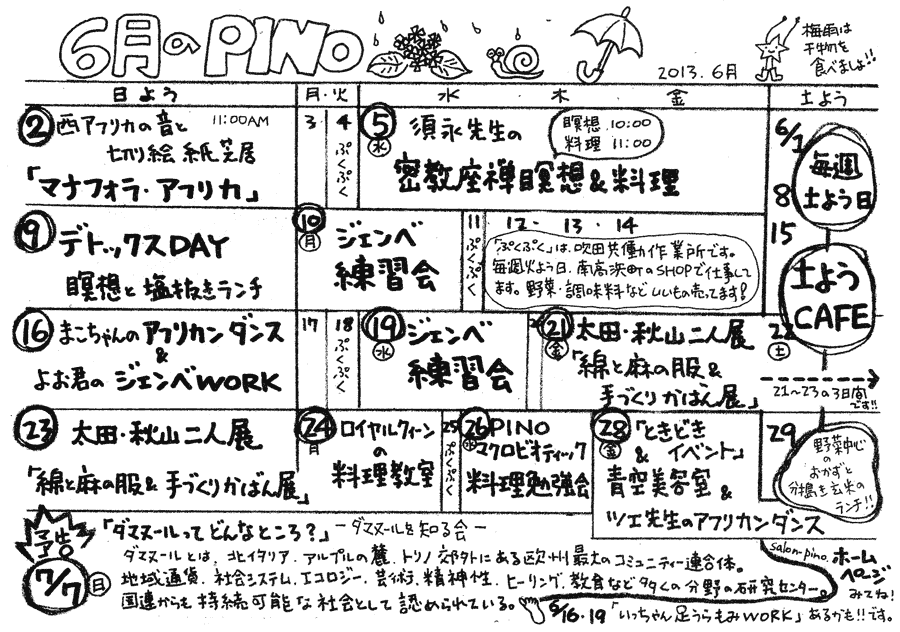 6月のPINO
2013.6月
梅雨は
干物を
食べましょ!!
日よう 月・火 水 木 金 土よう
2 西アフリカの音と 11:00AM
切り絵 紙芝居
「マナフォラ・アフリカ」
3 4 ぷくぷく
5 (水) 須永先生の
瞑想 10:00
料理 11:00
密教座禅瞑想&料理
6/1
8
15
毎週
土よう日
土よう
CAFE
9 デトックスDAY
瞑想と塩抜きランチ
10 (月) ジェンベ
練習会
11 ぷくぷく
12・13・14
「ぷくぷく」は、吹田共働作業所です。
毎週火よう日、南高浜町のSHOPで仕事して
ます。野菜・調味料などいいもの売ってます!
16 まこちゃんのアフリカンダンス
&
よお君のジェンベWORK
17 18 ぷくぷく
19 (水) ジェンベ
練習会
21 (金) 太田・秋山二人展
「綿と麻の服&
手づくりかばん展」
22 (土)
21〜23の3日間
です!!
23 太田・秋山二人展
「綿と麻の服&手づくりかばん展」
24 月 ロイヤルクィーン
の
料理教室
25 ぷくぷく
26 (水) PINO
マクロビオティック
料理勉強会
28 (金) 「ときどき
&イベント」
青空美容室&
ツェ先生のアフリカンダンス
29
野菜中心
の
おかずと
分搗き玄米の
ランチ!!
予告。
7/7 (日)
「ダマヌールってどんなところ?」 ーダマヌールを知る会ー
ダマヌールとは、北イタリア、アルプルの麓、トリノ郊外にある欧州最大のコミュニティー連合体。
地域通貨、社会システム、エコロジー、芸術、精神性、ヒーリング、教育など多くの分野の研究センター。
国連からも持続可能な社会として認められている。
salon-pino
ホーム
ページ
みてね!
6/16・19 「いっちゃん足うらもみWORK」あるかも!!です。